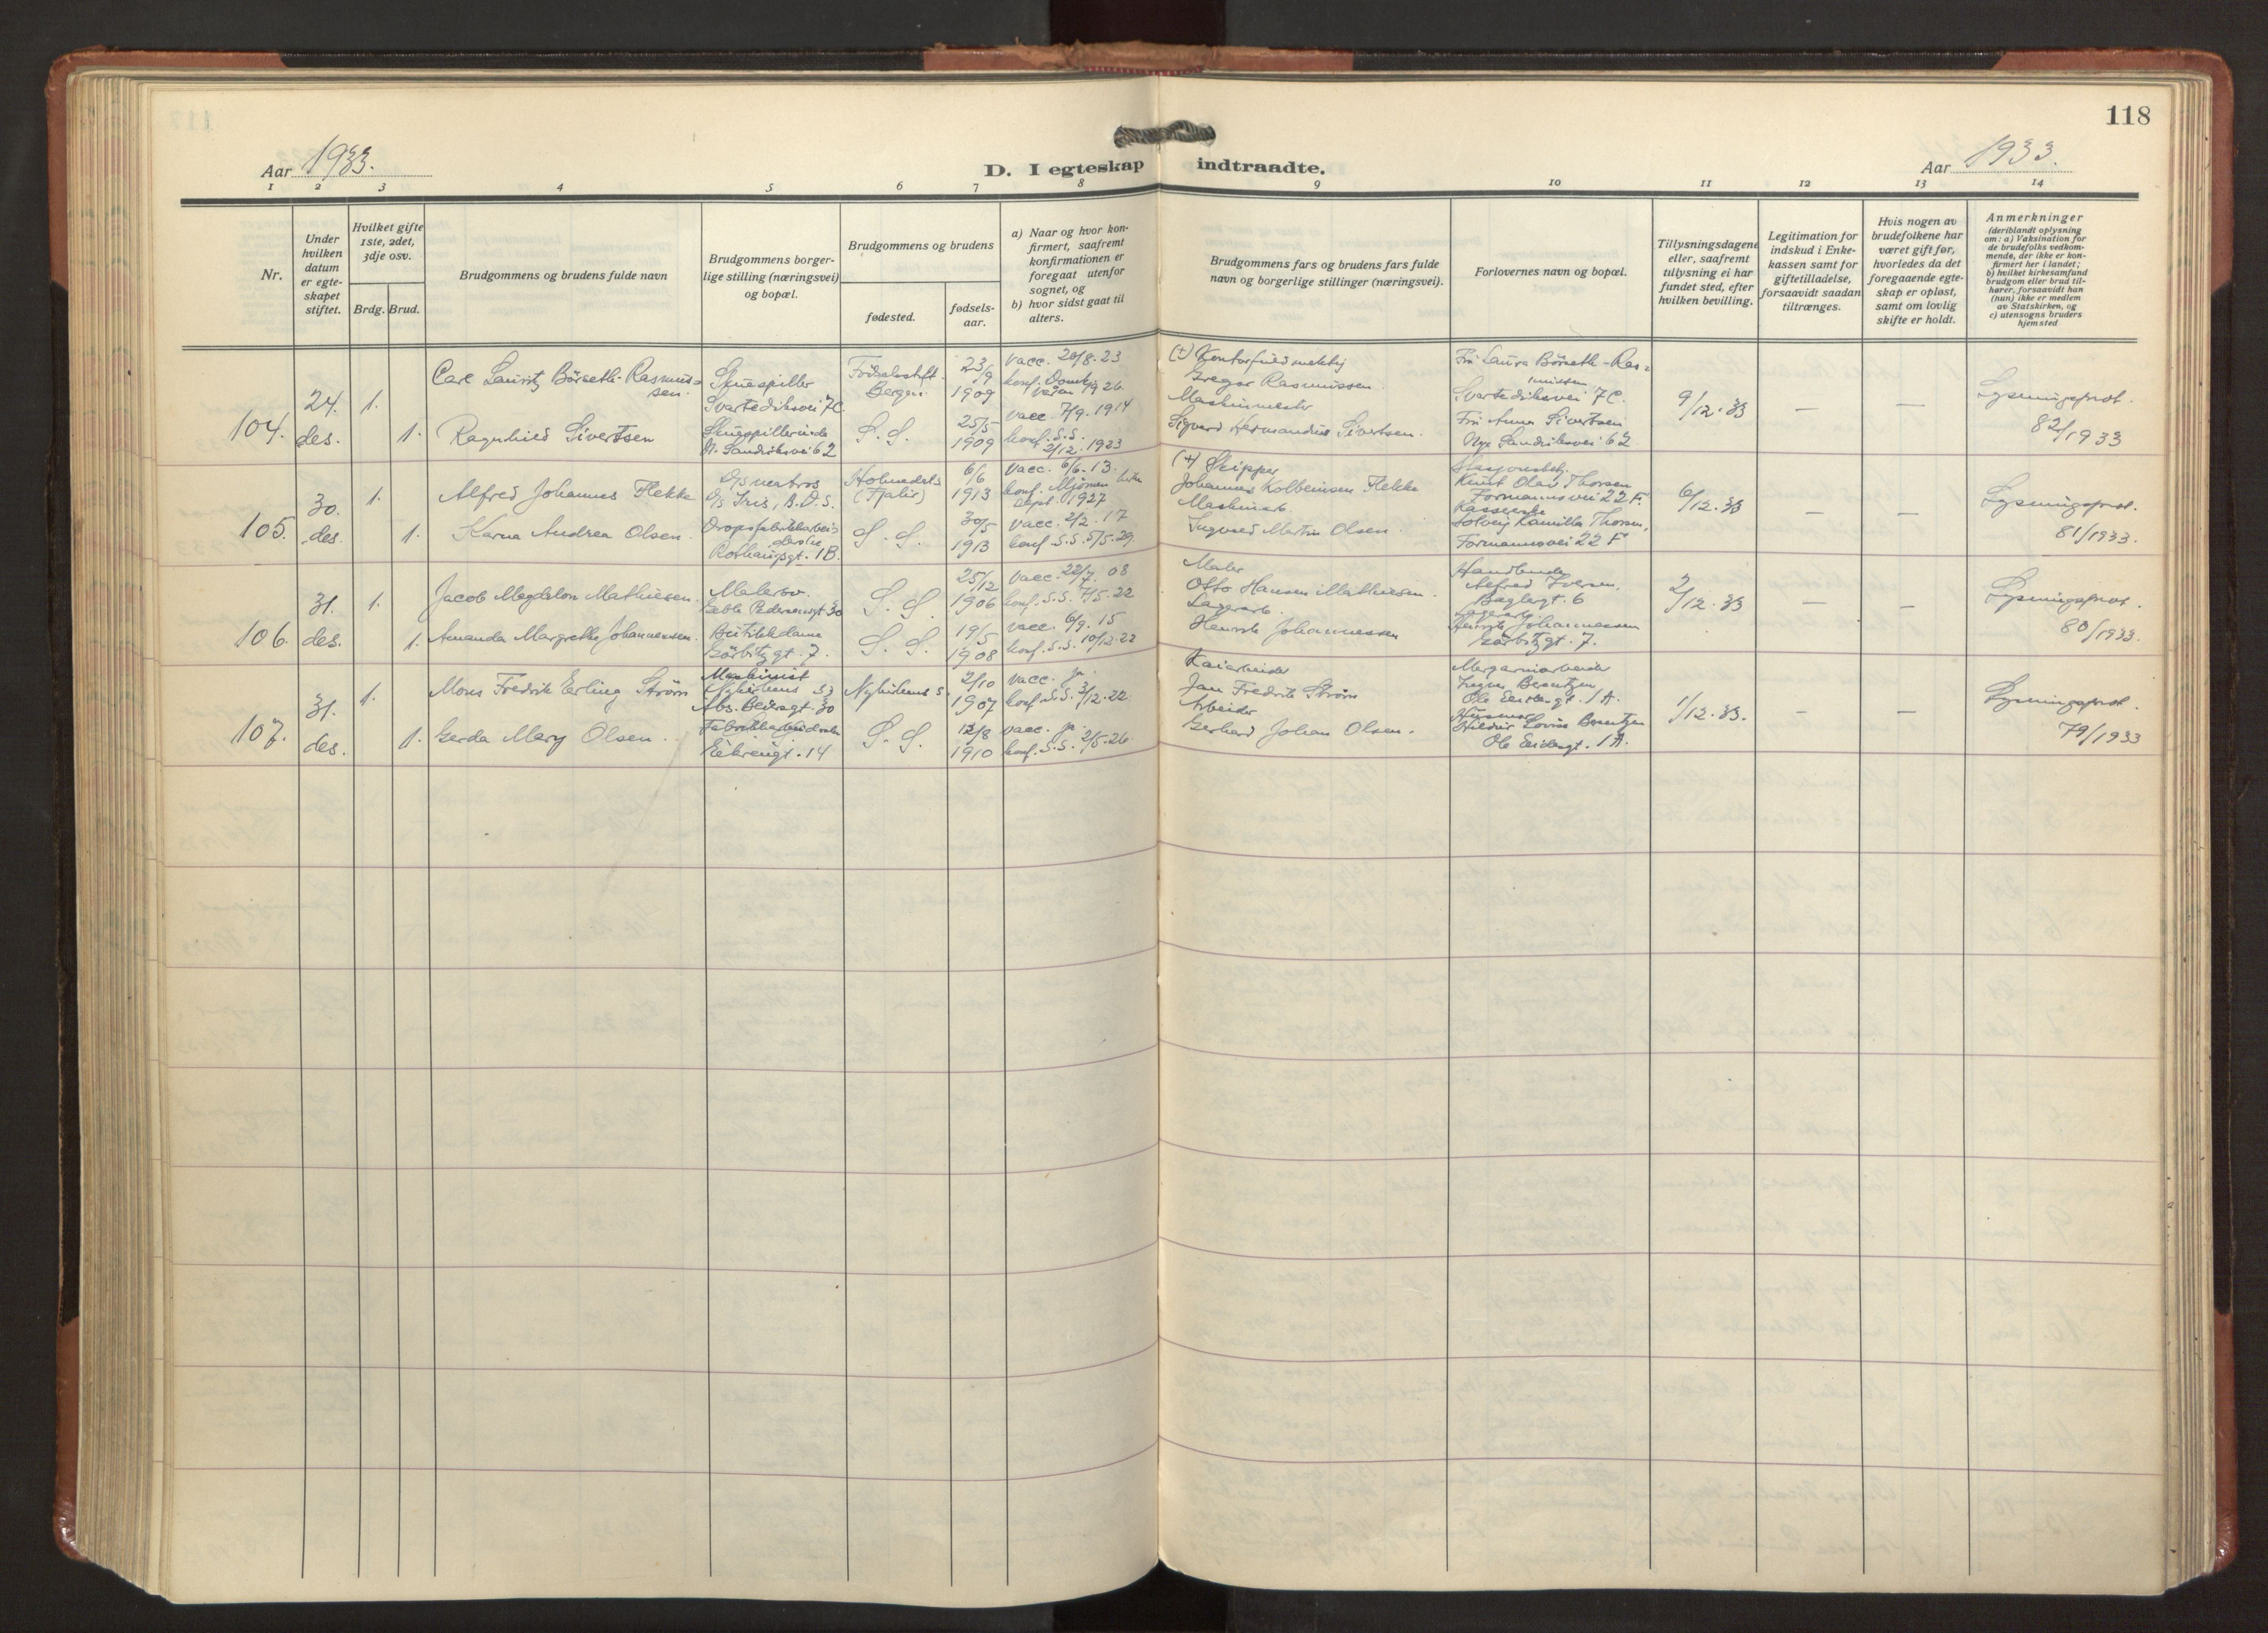 118
Aar 1933.
D. I egteskap indtraadte.
Aar 1933.
1 2 3 4 5 6 7 8 9 10 11 12 13 14
Nr.
Under hvilken datum er egteskapet stiftet.
Hvilket gifte 1ste, 2det, 3dje osv.
Brdg. Brud.
Brudgommens og brudens fulde navn
Brudgommens borgerlige stilling (næringsvei) og bopæl.
Brudgommens og brudens
fødested.
fødselsaar.
a) Naar og hvor konfirmert, saafremt konfirmationen er foregaat utenfor sognet, og
b) hvor sidst gaat til alters.
Brudgommens fars og brudens fars fulde navn og borgerlige stillinger (næringsvei).
Forlovernes navn og bopæl.
Tillysningsdagene eller, saafremt tillysning ei har fundet sted, efter hvilken bevilling.
Legitimation for indskud i Enkekassen samt for giftetilladelse, forsaavidt saadan tiltrænges.
Hvis nogen av brudefolkene har været gift før, hvorledes da det foregaaende egteskap er opløst, samt om lovlig skifte er holdt.
Anmerkninger
(deriblandt oplysning om: a) Vaksination for de brudefolks vedkommende, der ikke er konfirmert her i landet;
b) hvilket kirkesamfund brudgom eller brud tilhører, forsaavidt han (hun) ikke er medlem av Statskirken, og
c) utensogns bruders hjemsted
104.
24. des.
1.
Carl Lauritz Börseth-Rasmussen.
Skuespiller
Svartediksvei 7C.
Födselsstift.
Bergen
23/9 1909
vacc. 20/8.23
konf. Domk. våren 1926
(+) Kontorfuldmektig
Gregar Rasmussen.
Fru Laura Börseth-Rasmussen
Svartediksvei 7C.
9/12.33
—
—
Lysningsprot.
82/1933
1.
Ragnhild Sivertsen
Skuespillerinde
N. Sandviksvei 62
S. S.
25/5 1909
vacc. 7/9.1914
konf. S.S. 2/12.1923
Maskinmester
Sigvard Hermandius Sivertsen.
Fru Anna Sivertsen
Nye Sandviksvei 62
105.
30. des.
1.
Alfred Johannes Flekke
D/s matros
D/s Iris, B.D.S.
Holmedals
(Fjaler)
6/6 1913
vacc. 6/6.13.
konf. Mjömen kirke
sept. 1927
(+) Skipper
Johannes Kolbeinsen Flekke
Knut Olav Thorsen
Formannsvei 22 F.
6/12.33
—
—
Lysningsprot.
81/1933.
1.
Karna Andrea Olsen.
Dropsfabrikkarbeiderske
Rothaugsgt. 1B.
S. S.
30/5 1913
vacc. 2/2.17
konf. S.S. 5/5.29.
Maskinarb.
Ingvald Martin Olsen.
Kasserske
Solveig Kamilla Thorsen,
Formannsvei 22 F
106.
31. des.
1.
Jacob Magdalon Mathiesen.
Malersv.
Geble Pedersensgt 30
S. S.
25/12 1906
vacc. 22/7.08
konf. S.S. 7/5.22
Maler
Otto Hansen Mathiesen.
Alfred Iversen,
Baglergt. 6
2/12.33
—
—
Lysningsprot.
80/1933.
1.
Amanda Margrethe Johannessen.
Butikkdame
Görbitzgt. 7.
S. S.
19/5 1908
vacc. 6/9.15
konf. S.S. 10/12.22
Lagerarb.
Henrik Johannessen
Lagerarb.
Henrik Johannessen
Görbitzgt. 7.
107.
31. des.
1.
Mons Fredrik Erling Ström
Maskinist
Nykirkens s.
Abs. Beyersgt. 30
Nykirkens s.
2/10 1907
vacc. ja.
konf. S.S. 3/12.22
Kaiarbeider
Jan Fredrik Ström
Margarinarbeider
Berntzen
Ole Irgensgt. 1A.
1/12.33.
—
—
Lysningsprot.
79/1933
1.
Gerda Mary Olsen.
Fabrikkarbeiderske
Eikrengt. 14
S. S.
12/8 1910
vacc. ja.
konf. S.S. 2/5.26.
Arbeider
Gerhard Johan Olsen.
Husmor
Hildur Lovise Berntzen
Ole Irgensgt. 1A.